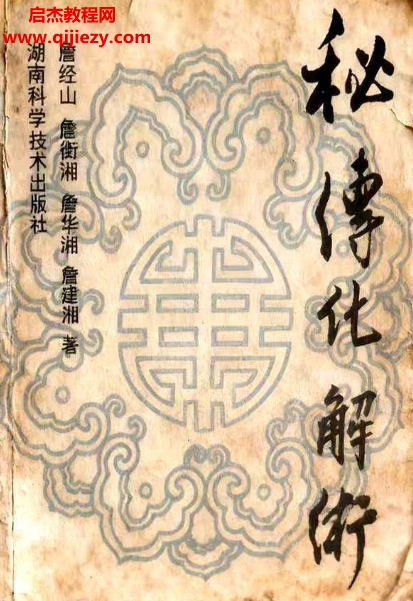 启杰教程网
www.qijiezy.com
秘傳化解術
詹经山 詹衡湘 詹华湘 詹建湘 著
湖南科学技术出版社